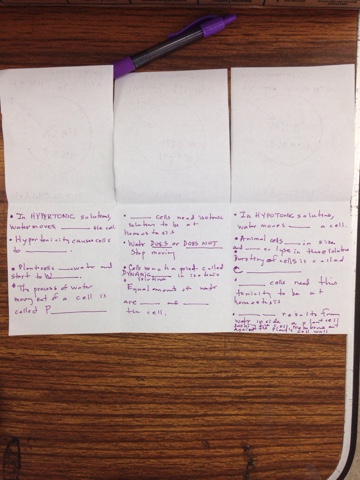 • In HYPERTONIC solutions,
water moves ______ the cell
• Hypertonicity causes cells
to ________.
• Plant cells ____ water and
start to W______.
• The process of water
moving out of a cell is
called P________
• ____ cells need isotonic
solution to be at
homeostasis
• Water DOES or DOES NOT
Stop moving
• Cells reach a point called
DYNAMIC ________ in isotonic
solutions
• Equal amounts of water
are ____ and ____
the cell.
• In HYPOTONIC solutions,
water moves ____ a cell.
• Animal cells ____ in size
and ____ or lyse in these solutions
Bursting of cells is called
C________
• ____ cells need this
tonicity to be at
homeostasis
• ____ ____ results from
water inside a plant cell
pushing the cell membrane out
against the plant's cell wall